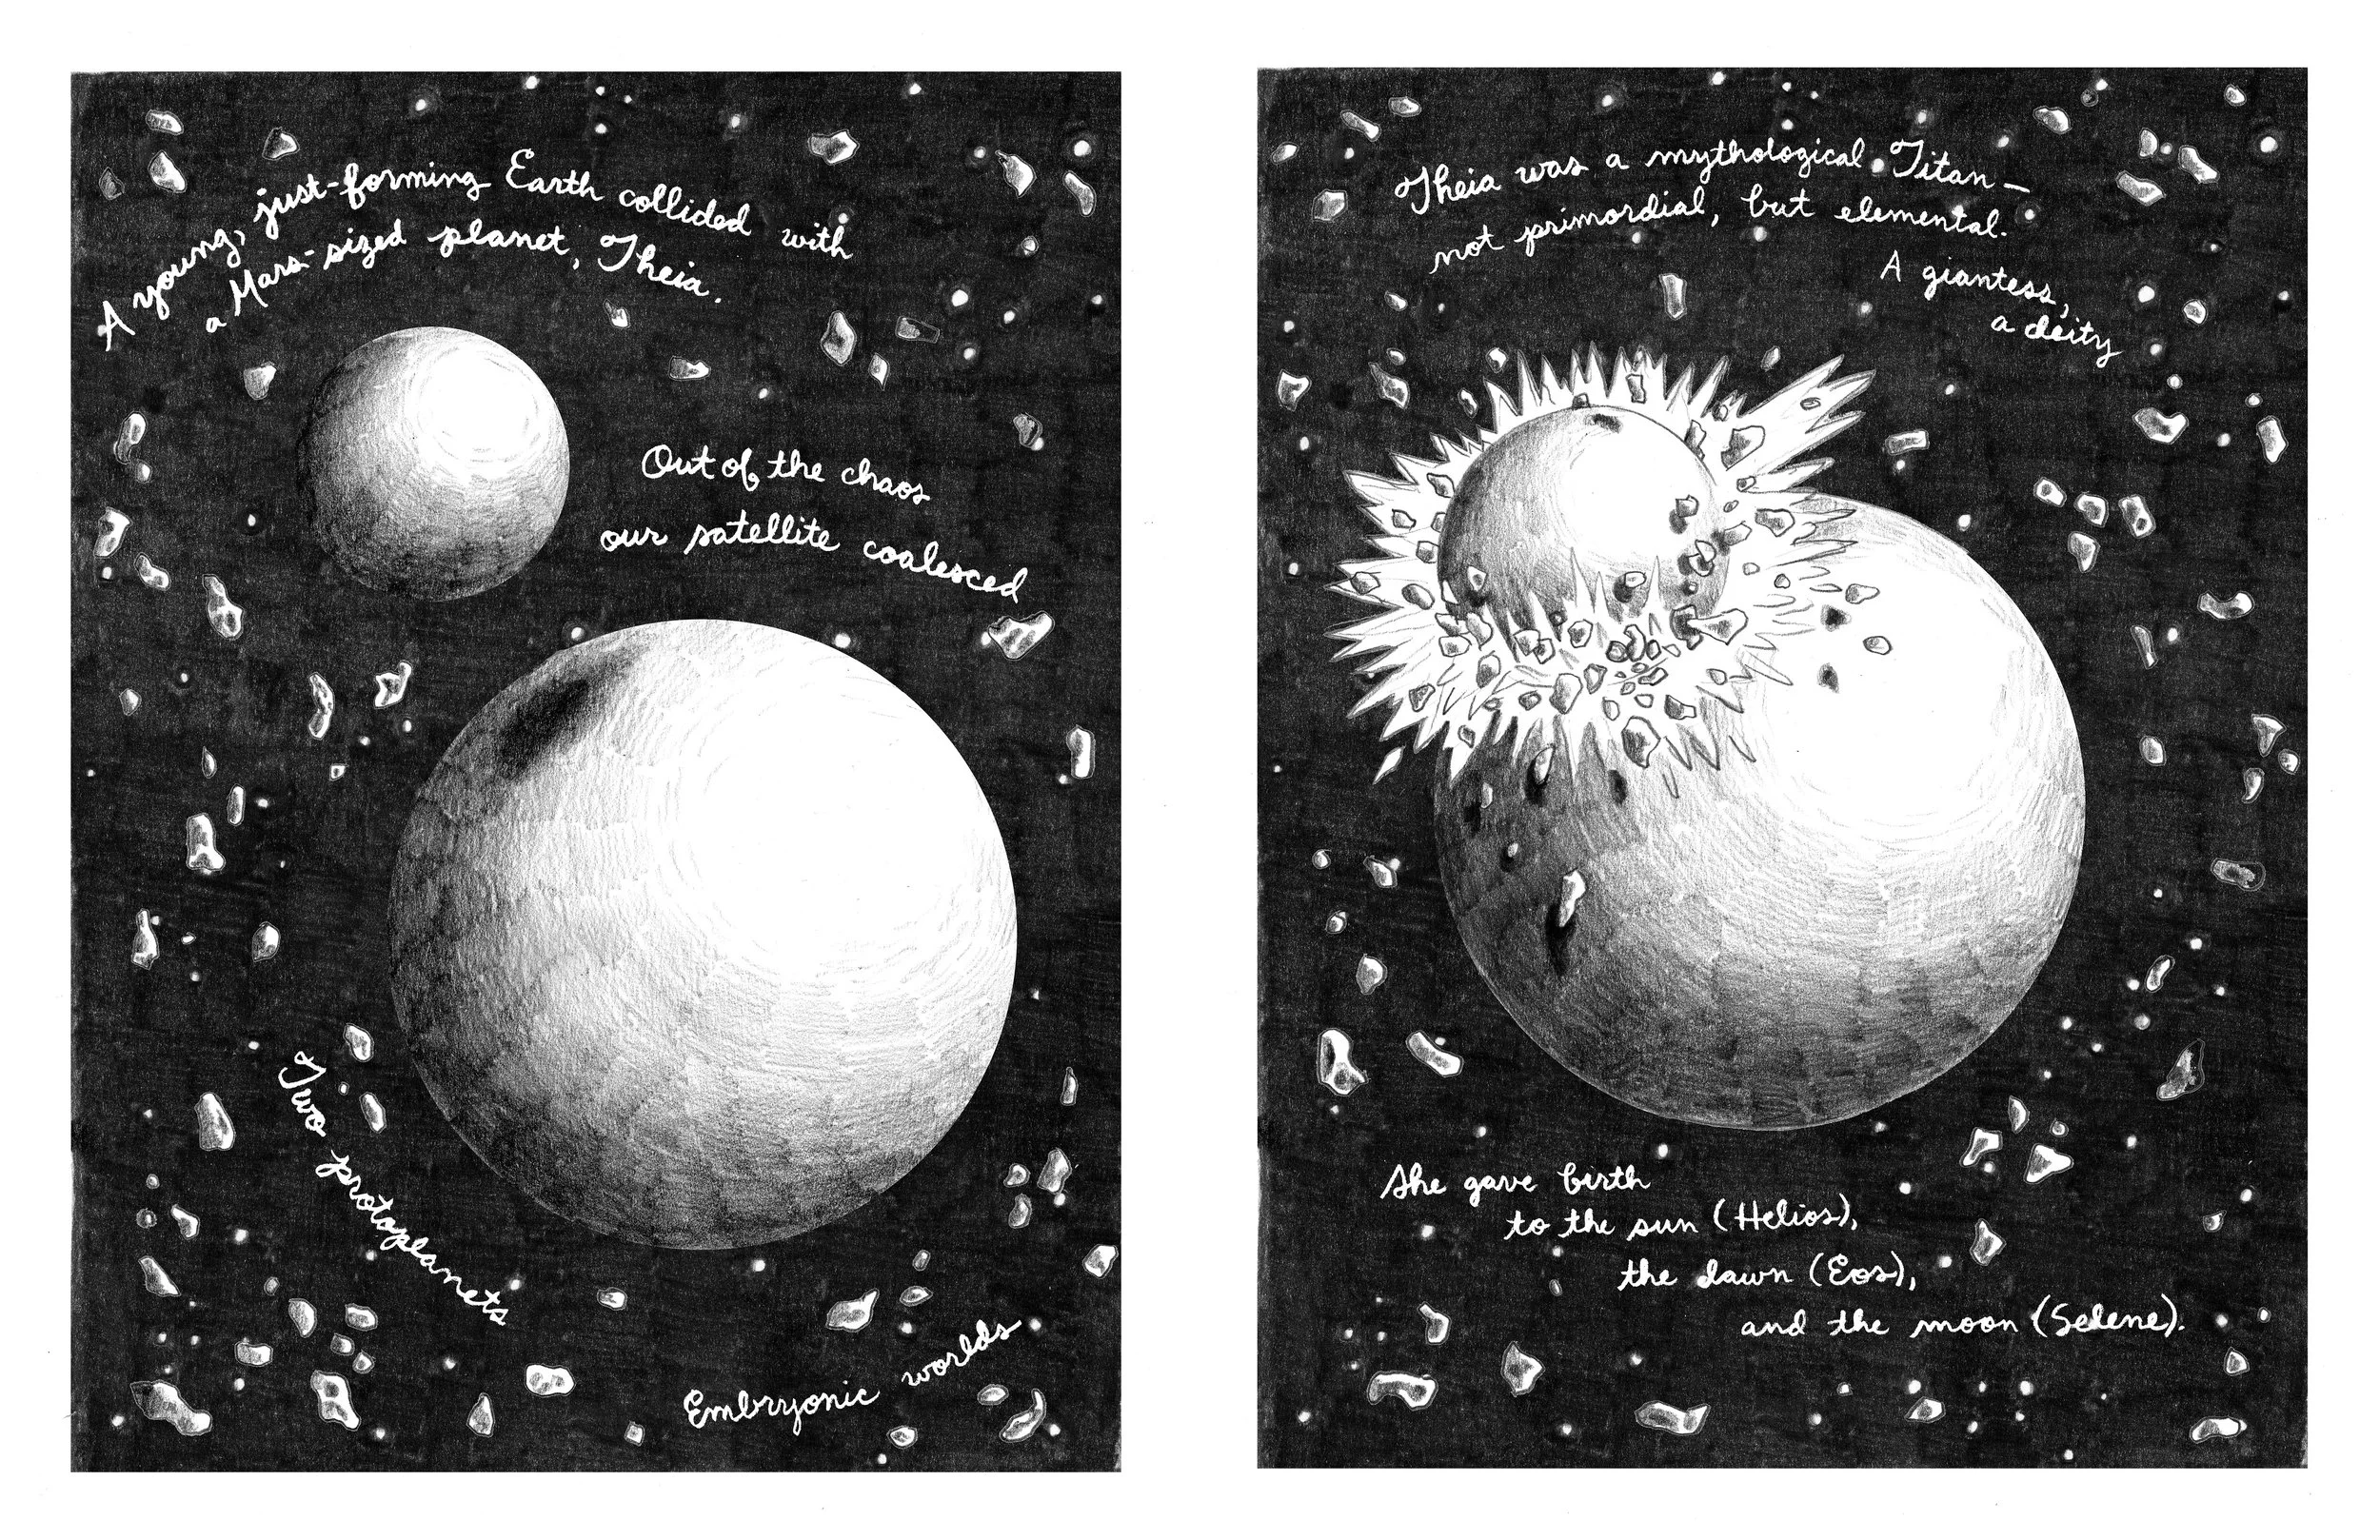 A young, just-forming Earth collided with
a Mars-sized planet, Theia.
Out of the chaos
our satellite coalesced
Two protoplanets
Embryonic worlds
Theia was a mythological Titan—
not primordial, but elemental.
A giantess,
a deity
She gave birth
to the sun (Helios),
the dawn (Eos),
and the moon (Selene).